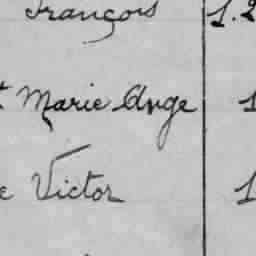 François 1.2
t Marie Ange 1
e Victor 1